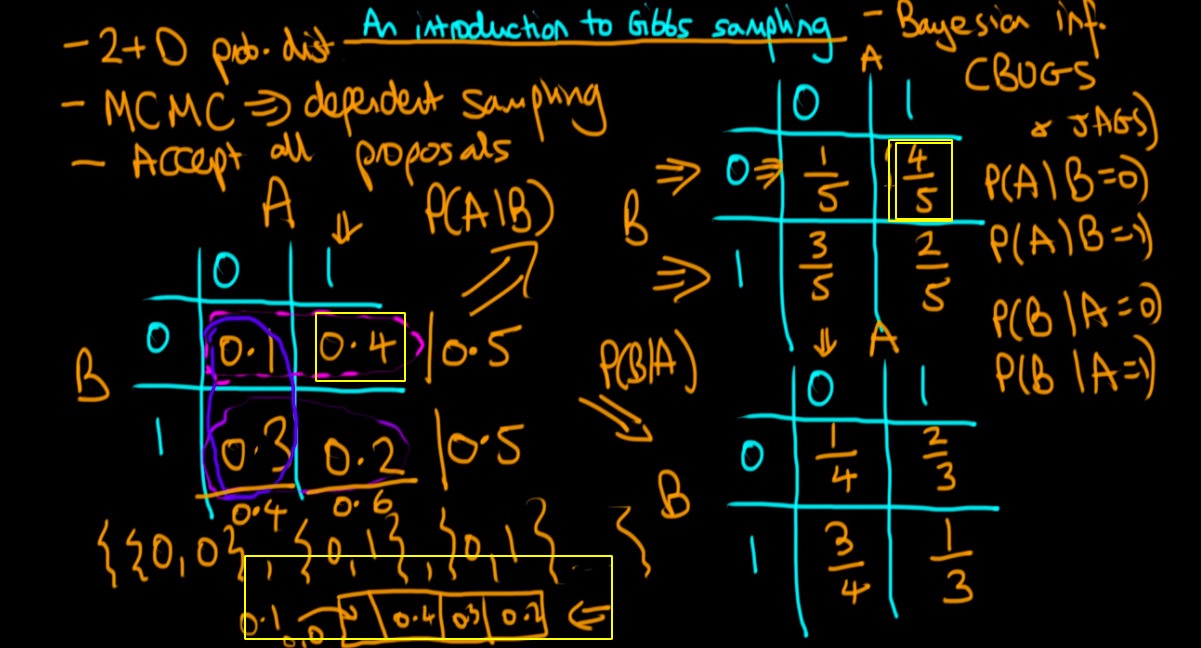 An introduction to Gibbs sampling
- 2+D prob. dist
- MCMC ⇒ dependent sampling
- Accept all proposals
- Bayesian inf.
CBUGS
& JAGS)
A
0 1
B
0 0.1 0.4 0.5
1 0.3 0.2 0.5
0.4 0.6
P(A|B)
P(B|A)
A
0 1
B
⇒ 0 ⇒ 1/5 4/5
⇒ 1 3/5 2/5
P(A|B=0)
P(A|B=1)
P(B|A=0)
P(B|A=1)
A
0 1
B
0 1/4 2/3
1 3/4 1/3
{{0,0}, {0,1}, {0,1} ... }
0.1 0.4 0.3 0.2 ⇐
0,0